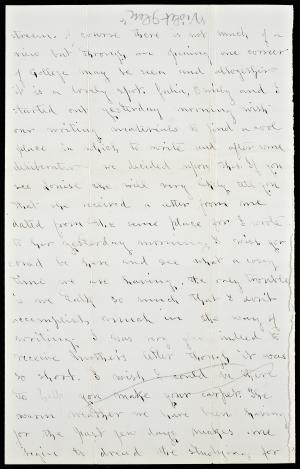 stream. Of course there is not much of a
view but through an opening one corner
of College may be seen and altogether
it is a lovely spot. Julia, Emily and I
started out yesterday morning with
our writing materials to find a cool
place in which to write and after some
deliberation we decided upon this. If you
see Louise she will very likely tell you
that she received a letter from me
dated from the same place for I wrote
to her yesterday morning. I wish you
could be here and see what a cosy
time we are having, the only trouble
is we talk so much that I don't
accomplish much in the way of
writing. I was very glad indeed to
receive Mother's letter though it was
so short. I wish I could be there
to help you make your carpet. The
warm weather we have been having
for the past few days makes me
begin to dread the studying, for